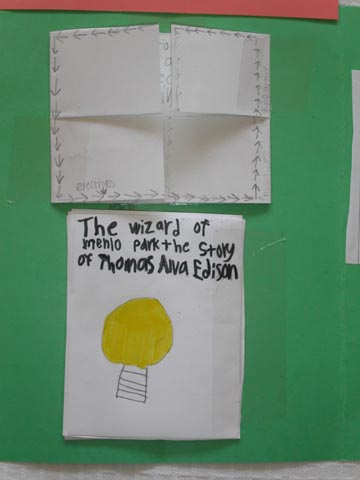 The wizard of
menlo park+the story
of Thomas Alva Edison